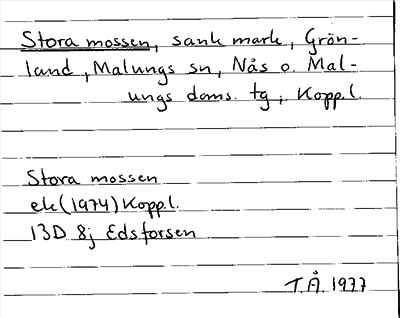 Stora mossen, sank mark, Grön-
land, Malungs sn, Nås o. Mal-
ungs doms. tg, Kopp.l.
Stora mossen
ek (1974) Kopp.l.
13D 8j Edsforsen
T.Å. 1977